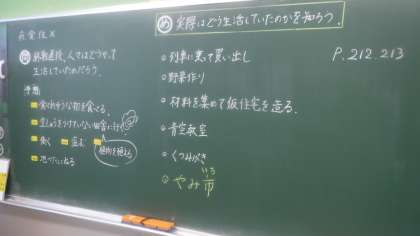 問 終戦直後、人々はどうやって
生活していたのだろう。
予想
食べれそうな物を食べる。
空しゅうをうけていない田舎に行く
働く
盗む
植物を植える
恐べたいねる
め 実際はどう生活していたのかを知ろう。
P.212.213
・列車に乗って買い出し
・野菜作り
・材料を集めて仮住宅を造る。
・青空教室
・くつみがき
・やみ市
いち